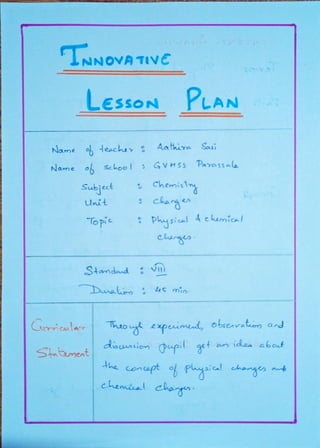 INNOVATIVE
LESSON PLAN
Name of teacher : Aathira Sasi
Name of school : GVHSS Parassala
Subject : Chemistry
Unit : Changes
Topic : Physical & chemical
changes.
Standard : VIII
Duration : 45 min
Curricular
Statement
Through experiment, observation and
discussion pupil get an idea about
the concept of physical changes and
chemical changes.